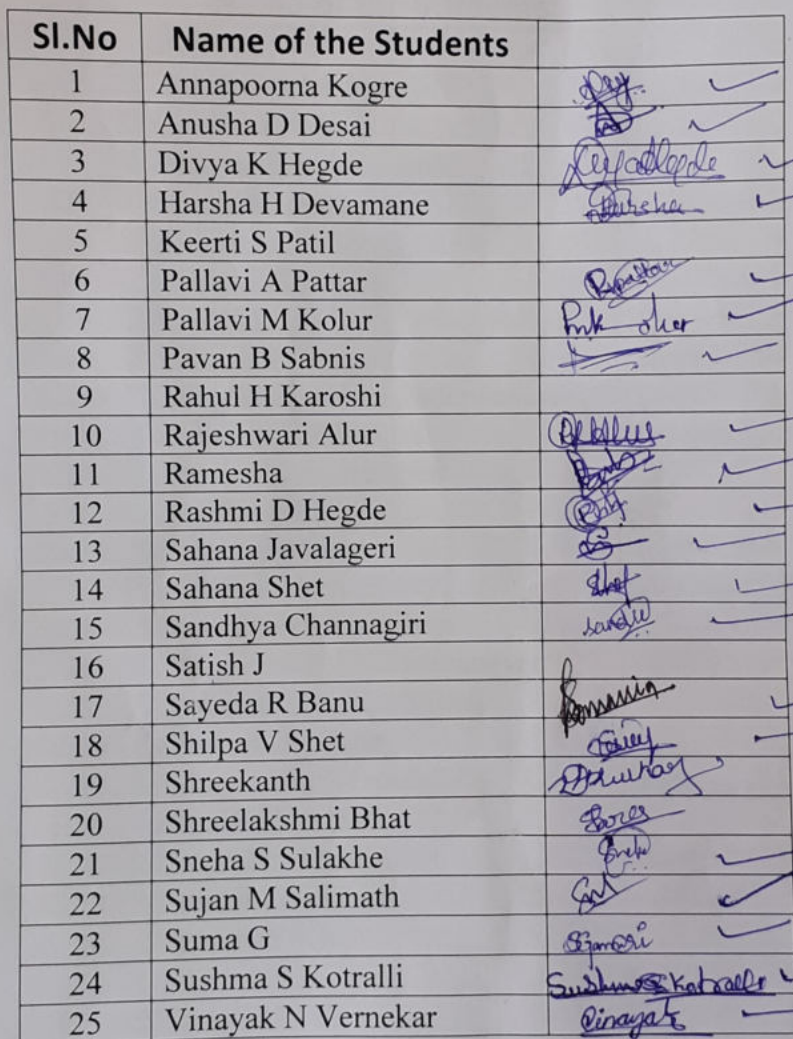 Sl.No Name of the Students
1 Annapoorna Kogre
2 Anusha D Desai
3 Divya K Hegde
4 Harsha H Devamane Harsha
5 Keerti S Patil
6 Pallavi A Pattar
7 Pallavi M Kolur
8 Pavan B Sabnis
9 Rahul H Karoshi
10 Rajeshwari Alur
11 Ramesha
12 Rashmi D Hegde
13 Sahana Javalageri
14 Sahana Shet Shet
15 Sandhya Channagiri
16 Satish J
17 Sayeda R Banu
18 Shilpa V Shet
19 Shreekanth
20 Shreelakshmi Bhat
21 Sneha S Sulakhe Sneha
22 Sujan M Salimath
23 Suma G
24 Sushma S Kotralli Sushma S Kotralli
25 Vinayak N Vernekar Vinayak